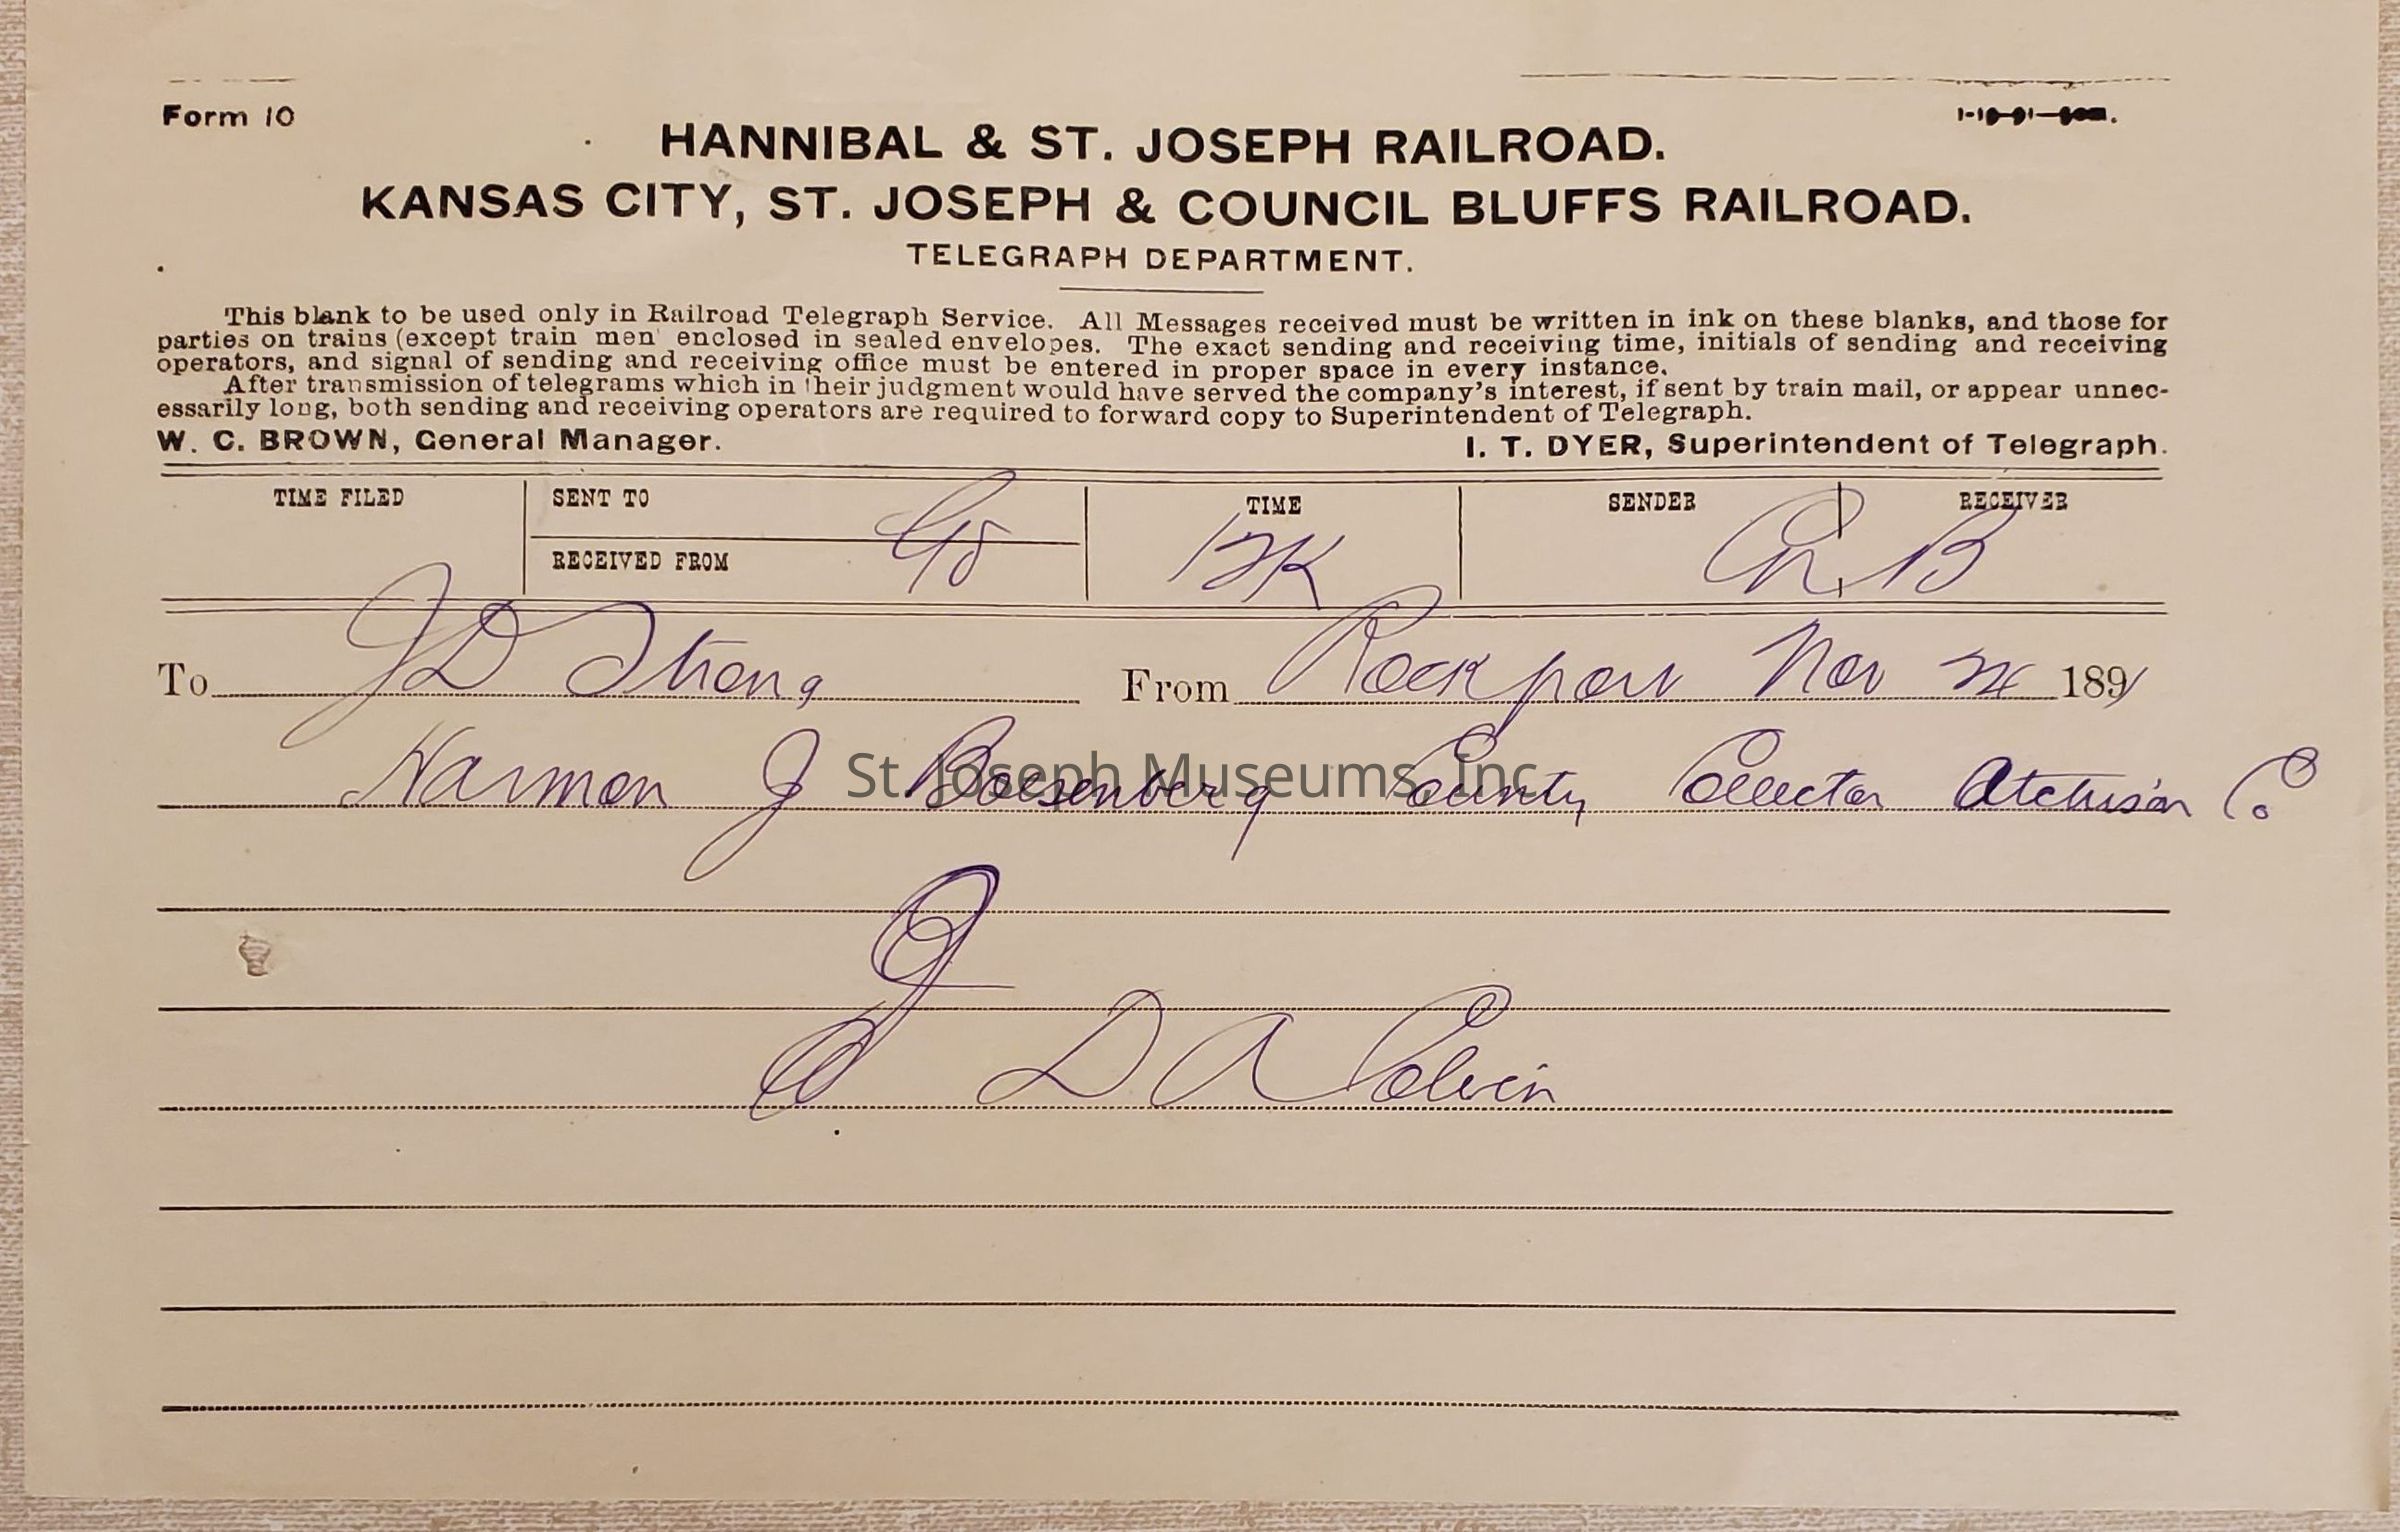 Form 10
HANNIBAL & ST. JOSEPH RAILROAD.
KANSAS CITY, ST. JOSEPH & COUNCIL BLUFFS RAILROAD.
TELEGRAPH DEPARTMENT.
This blank to be used only in Railroad Telegraph Service. All Messages received must be written in ink on these blanks, and those for
parties on trains (except train men enclosed in sealed envelopes. The exact sending and receiving time, initials of sending and receiving
operators, and signal of sending and receiving office must be entered in proper space in every instance.
After transmission of telegrams which in their judgment would have served the company's interest, if sent by train mail, or appear unnec-
essarily long, both sending and receiving operators are required to forward copy to Superintendent of Telegraph.
W. C. BROWN, General Manager. I. T. DYER, Superintendent of Telegraph.
TIME FILED SENT TO TIME SENDER RECEIVER
RECEIVED FROM 12K B
To J D Strong From Rockport Nov 24 1891
Harmon J Boesenberg County Collector Atchison Co
St. Joseph Museums, Inc.
D A Colvin